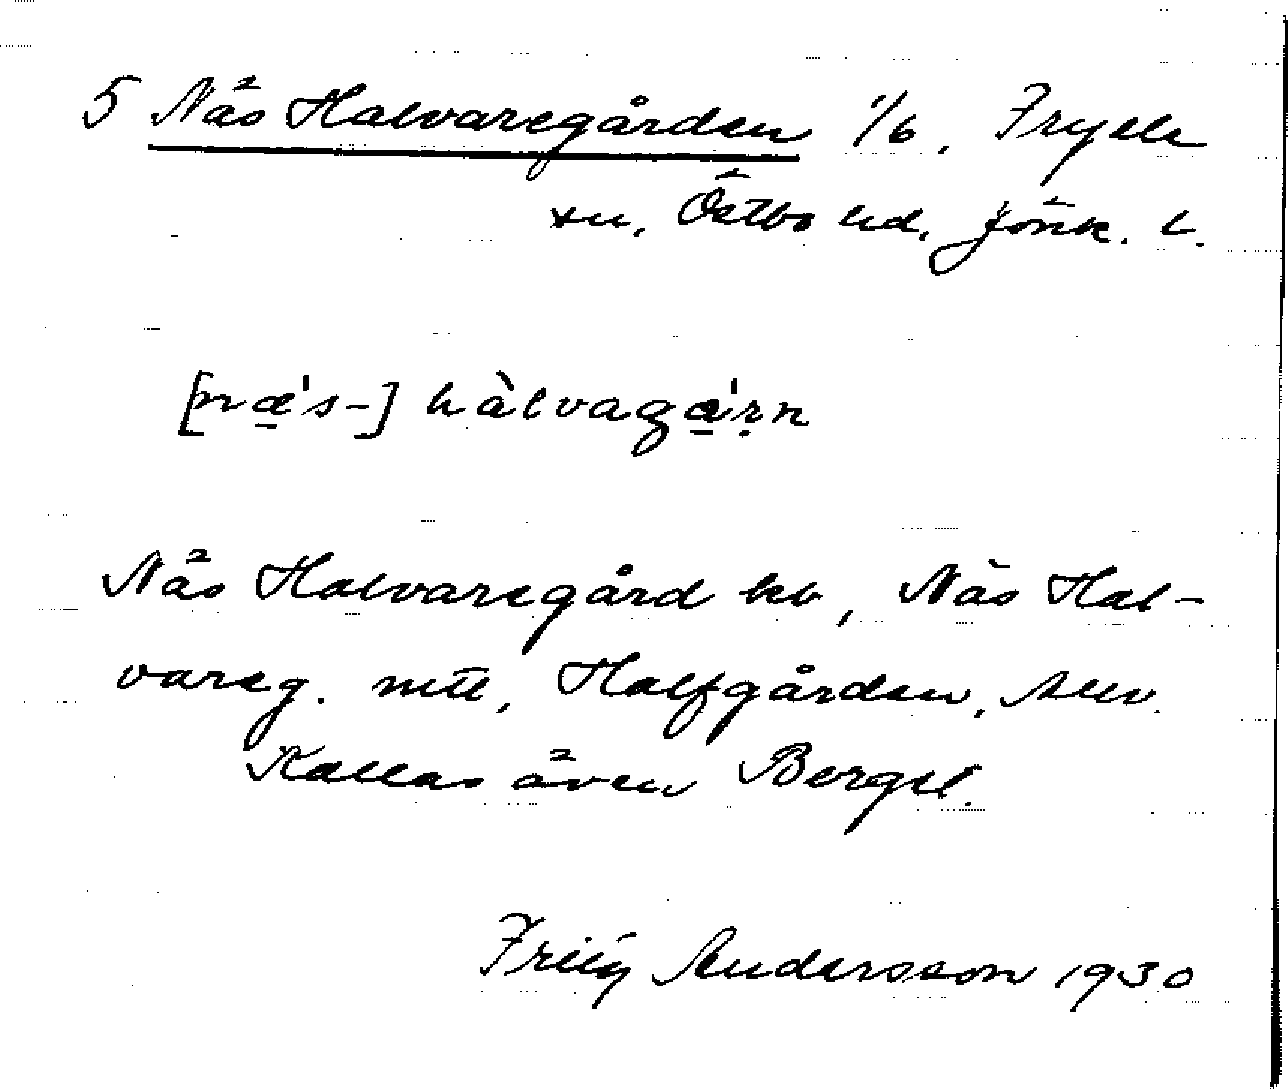 5 Näs Halvaregården 1/6. Fryele
sn, Östbo hd, Jönk. l.
[næ's-] hàlvagạ'ṛn
Näs Halvaregård kb, Näs Hal-
vareg. mtl, Halfgården, Allv.
Kallas även Bergel.
Fritz Andersson 1930